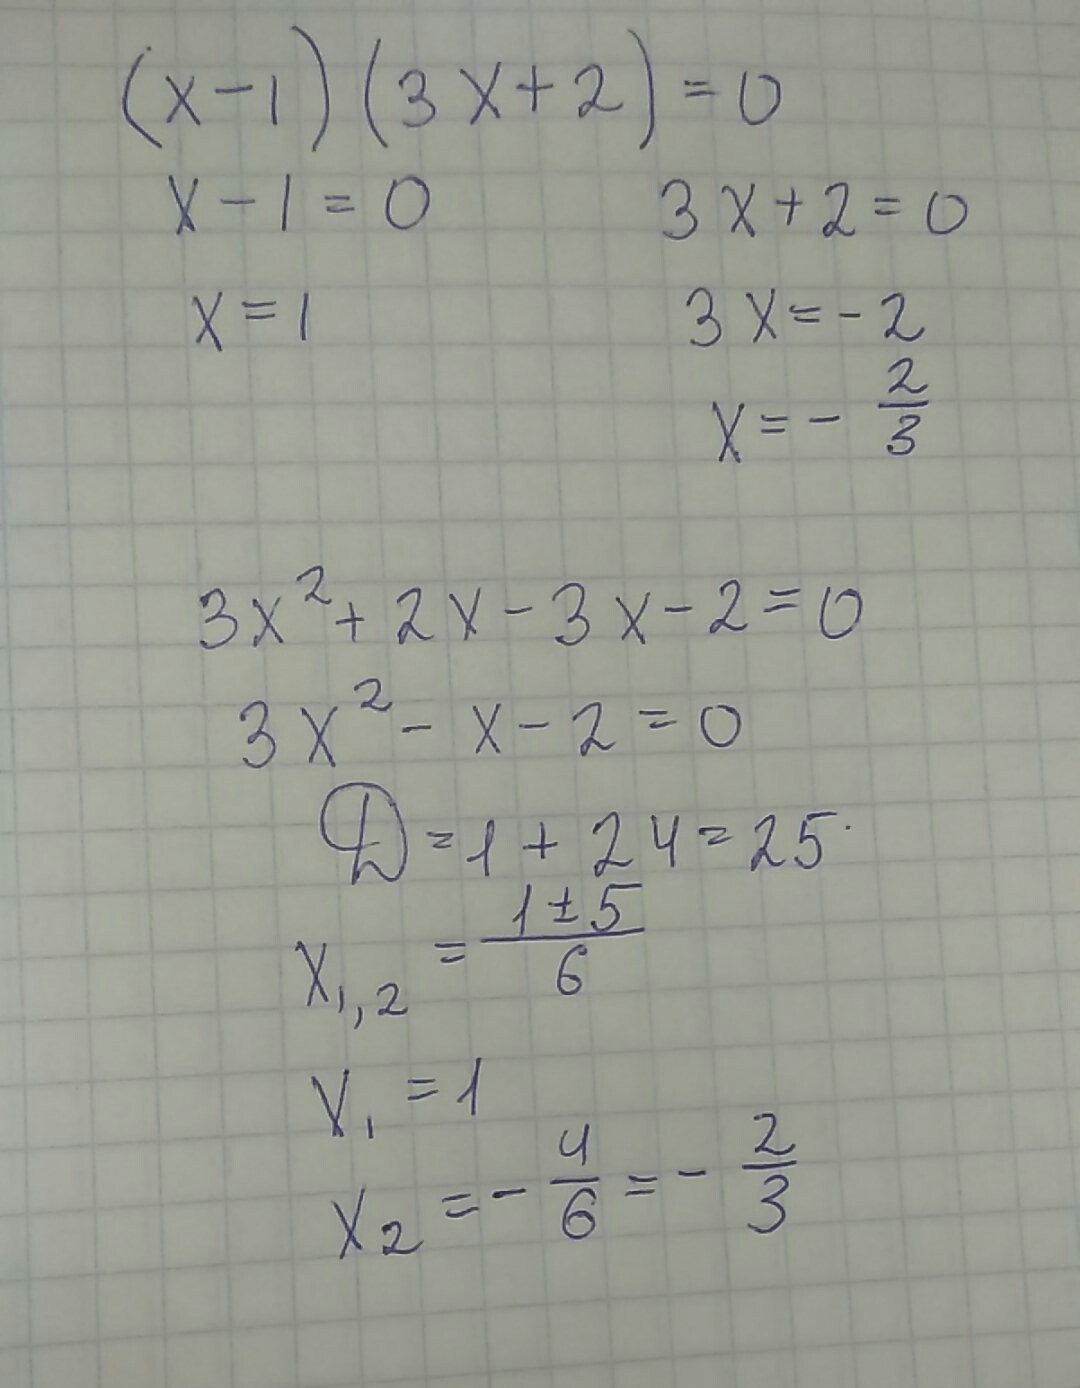 (x-1)(3x+2)=0
x-1=0 3x+2=0
x=1 3x=-2
x=-2/3
3x²+2x-3x-2=0
3x²-x-2=0
D=1+24=25
x₁,₂=(1±5)/6
x₁=1
x₂=-4/6=-2/3